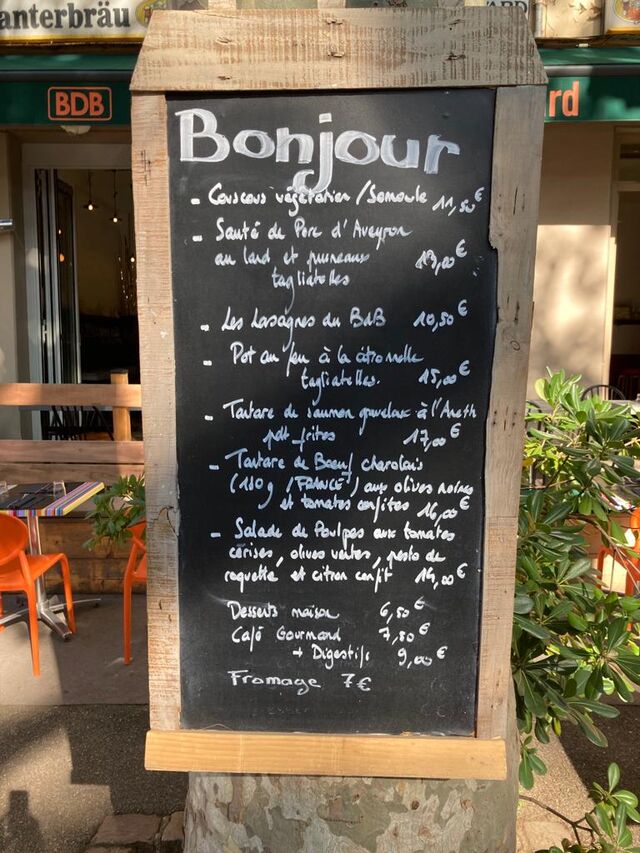 anterbräu
BDB
rd
Bonjour
- Couscous végétarien / Semoule 11,50€
- Sauté de Porc d'Aveyron
au lard et pruneaux
tagliatelles
- Les Lasagnes du BdB 10,50€
- Pot au feu à la citronnelle
tagliatelles. 15,00€
- Tartare de saumon gravelax à l'Aneth
pdt frites 17,00€
- Tartare de Boeuf charolais
(180g /FRANCE) aux olives noires
et tomates confites 16,00€
- Salade de Poulpes aux tomates
cerises, olives vertes, pesto de
roquette et citron confit 14,00€
Desserts maison 6,50€
Café Gourmand 7,80€
+ Digestifs 9,00€
Fromage 7€